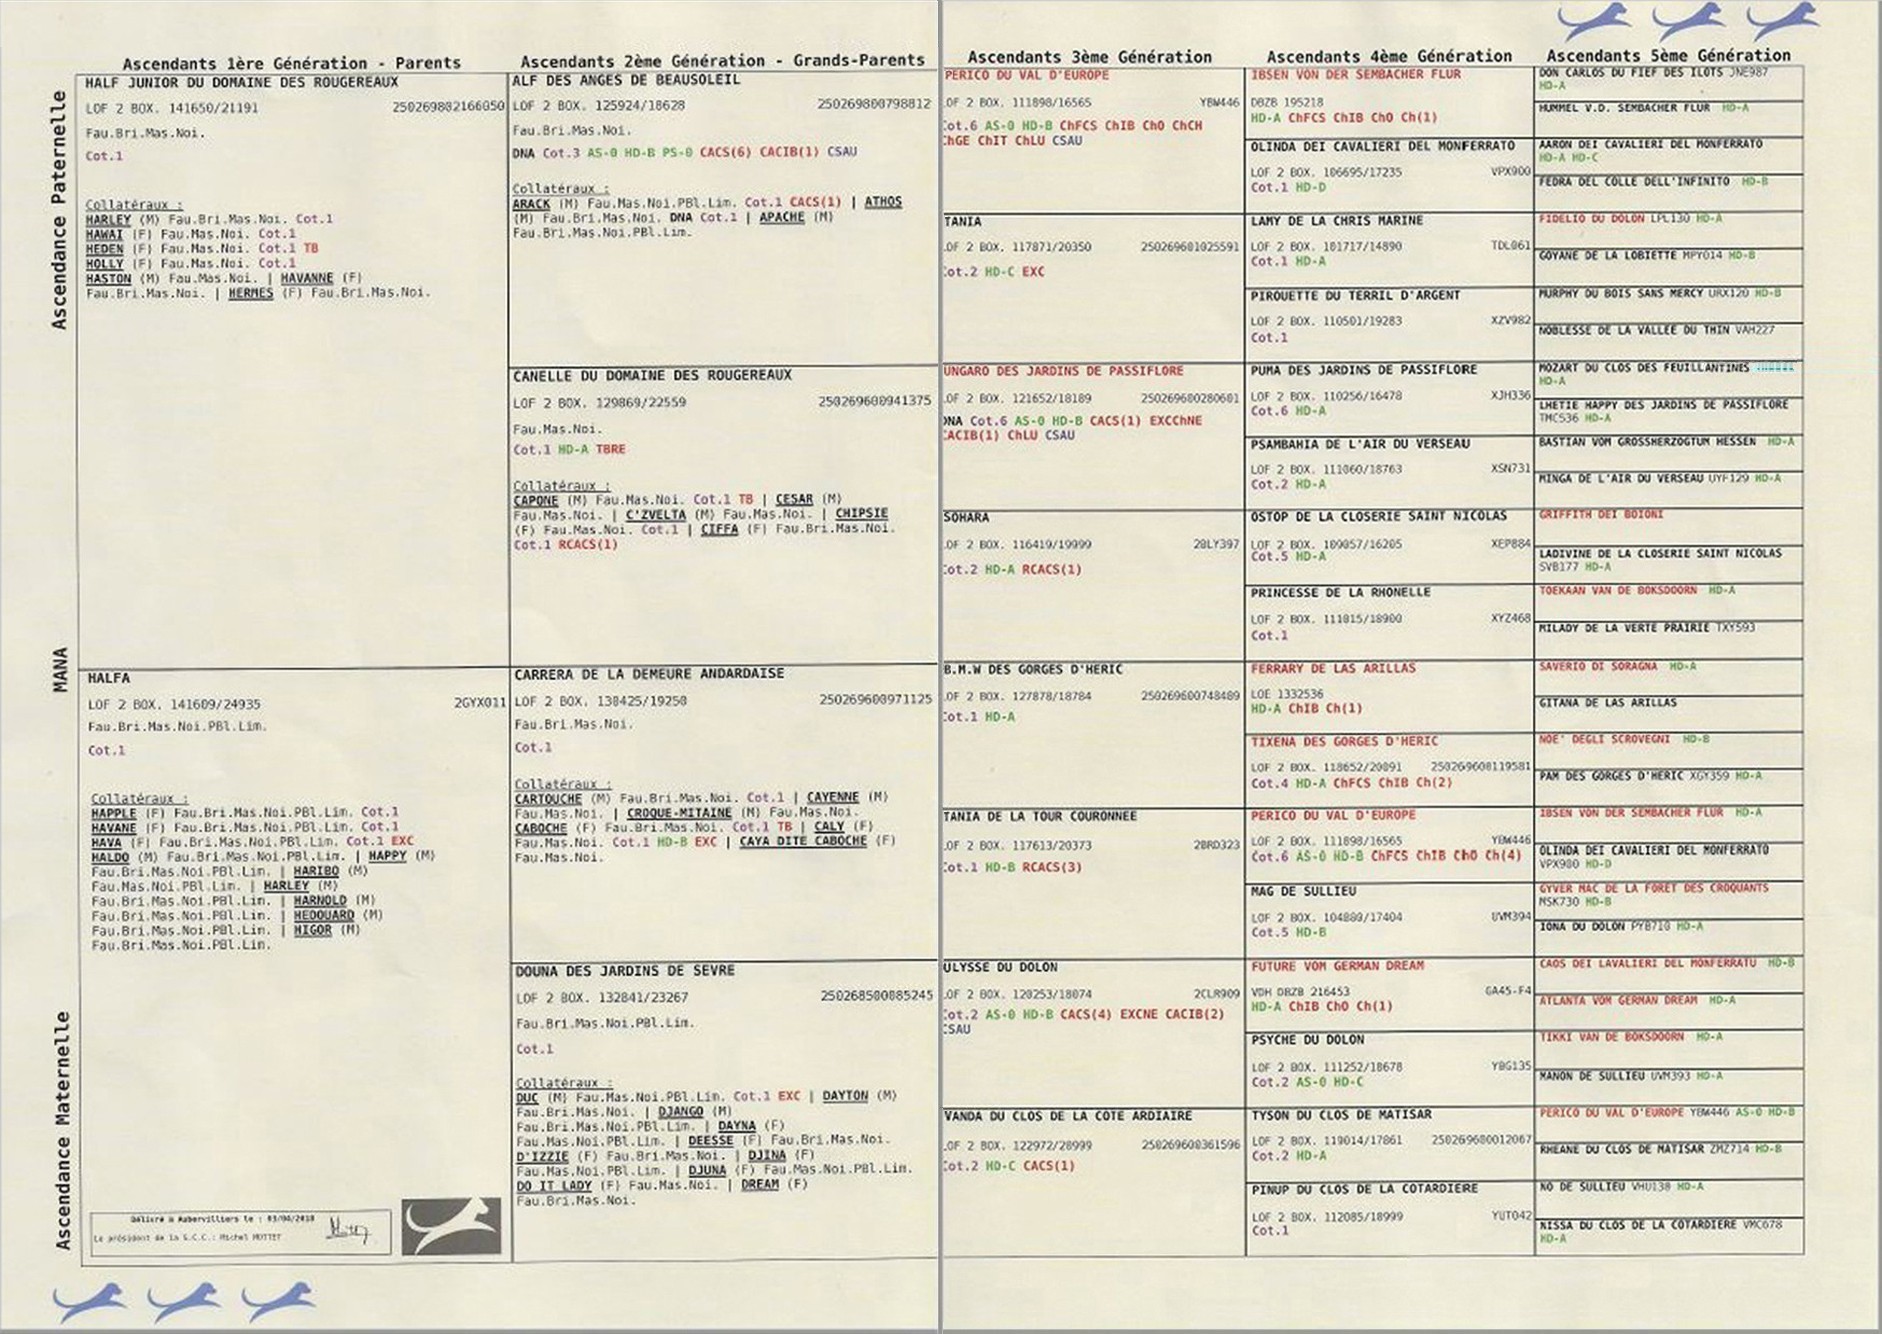 Ascendants 1ère Génération - Parents
Ascendance Paternelle
MANA
Ascendance Maternelle
HALF JUNIOR DU DOMAINE DES ROUGEREAUX
LOF 2 BOX. 141650/21191 250269802166050
Fau.Bri.Mas.Noi.
Cot.1
Collatéraux :
HARLEY (M) Fau.Bri.Mas.Noi. Cot.1
HAWAI (F) Fau.Mas.Noi. Cot.1
HEDEN (F) Fau.Mas.Noi. Cot.1 TB
HOLLY (F) Fau.Mas.Noi. Cot.1
HASTON (M) Fau.Mas.Noi. | HAVANNE (F)
Fau.Bri.Mas.Noi. | HERMES (F) Fau.Bri.Mas.Noi.
HALFA
LOF 2 BOX. 141609/24935 2GYX011
Fau.Bri.Mas.Noi.PBl.Lim.
Cot.1
Collatéraux :
HAPPLE (F) Fau.Bri.Mas.Noi.PBl.Lim. Cot.1
HAVANE (F) Fau.Bri.Mas.Noi.PBl.Lim. Cot.1
HAVA (F) Fau.Bri.Mas.Noi.PBl.Lim. Cot.1 EXC
HALDO (M) Fau.Mas.Noi.PBl.Lim. | HAPPY (M)
Fau.Bri.Mas.Noi.PBl.Lim. | HARIBO (M)
Fau.Mas.Noi.PBl.Lim. | HARLEY (M)
Fau.Bri.Mas.Noi.PBl.Lim. | HARNOLD (M)
Fau.Bri.Mas.Noi.PBl.Lim. | HEDOUARD (M)
Fau.Bri.Mas.Noi.PBl.Lim. | HIGOR (M)
Fau.Bri.Mas.Noi.PBl.Lim.
Délivré à Aubervilliers le : 03/04/2018
Le président de la S.C.C.: Michel MOTTET
Ascendants 2ème Génération - Grands-Parents
ALF DES ANGES DE BEAUSOLEIL
LOF 2 BOX. 125924/18628 250269800798812
Fau.Bri.Mas.Noi.
DNA Cot.3 AS-0 HD-B PS-0 CACS(6) CACIB(1) CSAU
Collatéraux :
ARACK (M) Fau.Mas.Noi.PBl.Lim. Cot.1 CACS(1) | ATHOS
(M) Fau.Bri.Mas.Noi. DNA Cot.1 | APACHE (M)
Fau.Bri.Mas.Noi.PBl.Lim.
CANELLE DU DOMAINE DES ROUGEREAUX
LOF 2 BOX. 129869/22559 250269600941375
Fau.Mas.Noi.
Cot.1 HD-A TBRE
Collatéraux :
CAPONE (M) Fau.Mas.Noi. Cot.1 TB | CESAR (M)
Fau.Mas.Noi. | C'ZVELTA (M) Fau.Mas.Noi. | CHIPSIE
(F) Fau.Mas.Noi. Cot.1 | CIFFA (F) Fau.Bri.Mas.Noi.
Cot.1 RCACS(1)
CARRERA DE LA DEMEURE ANDARDAISE
LOF 2 BOX. 130425/19250 250269600971125
Fau.Bri.Mas.Noi.
Cot.1
Collatéraux :
CARTOUCHE (M) Fau.Bri.Mas.Noi. Cot.1 | CAYENNE (M)
Fau.Mas.Noi. | CROQUE-MITAINE (M) Fau.Mas.Noi.
CABOCHE (F) Fau.Bri.Mas.Noi. Cot.1 TB | CALY (F)
Fau.Mas.Noi. Cot.1 HD-B EXC | CAYA DITE CABOCHE (F)
Fau.Mas.Noi.
DOUNA DES JARDINS DE SEVRE
LOF 2 BOX. 132841/23267 250268500085245
Fau.Bri.Mas.Noi.PBl.Lim.
Cot.1
Collatéraux :
DUC (M) Fau.Mas.Noi.PBl.Lim. Cot.1 EXC | DAYTON (M)
Fau.Bri.Mas.Noi. | DJANGO (M)
Fau.Bri.Mas.Noi.PBl.Lim. | DAYNA (F)
Fau.Mas.Noi.PBl.Lim. | DEESSE (F) Fau.Bri.Mas.Noi.
D'IZZIE (F) Fau.Bri.Mas.Noi. | DJINA (F)
Fau.Mas.Noi.PBl.Lim. | DJUNA (F) Fau.Mas.Noi.PBl.Lim.
DO IT LADY (F) Fau.Mas.Noi. | DREAM (F)
Fau.Bri.Mas.Noi.
Ascendants 3ème Génération
PERICO DU VAL D'EUROPE
OF 2 BOX. 111898/16565 YBW446
Cot.6 AS-0 HD-B ChFCS ChIB ChO ChCH
ChGE ChIT ChLU CSAU
TANIA
OF 2 BOX. 117871/20350 250269601025591
Cot.2 HD-C EXC
UNGARO DES JARDINS DE PASSIFLORE
OF 2 BOX. 121652/18189 250269600280601
DNA Cot.6 AS-0 HD-B CACS(1) EXCChNE
CACIB(1) ChLU CSAU
SOHARA
OF 2 BOX. 116419/19999 2BLY397
Cot.2 HD-A RCACS(1)
B.M.W DES GORGES D'HERIC
OF 2 BOX. 127878/18784 250269600748489
Cot.1 HD-A
TANIA DE LA TOUR COURONNEE
OF 2 BOX. 117613/20373 2BRD323
Cot.1 HD-B RCACS(3)
ULYSSE DU DOLON
OF 2 BOX. 120253/18074 2CLR909
Cot.2 AS-0 HD-B CACS(4) EXCNE CACIB(2)
CSAU
VANDA DU CLOS DE LA COTE ARDIAIRE
OF 2 BOX. 122972/20999 250269600361596
Cot.2 HD-C CACS(1)
Ascendants 4ème Génération
IBSEN VON DER SEMBACHER FLUR
DBZB 195218
HD-A ChFCS ChIB ChO Ch(1)
OLINDA DEI CAVALIERI DEL MONFERRATO
LOF 2 BOX. 106695/17235 VPX900
Cot.1 HD-D
LAMY DE LA CHRIS MARINE
LOF 2 BOX. 101717/14890 TDL061
Cot.1 HD-A
PIROUETTE DU TERRIL D'ARGENT
LOF 2 BOX. 110501/19283 XZV982
Cot.1
PUMA DES JARDINS DE PASSIFLORE
LOF 2 BOX. 110256/16478 XJH336
Cot.6 HD-A
PSAMBAHIA DE L'AIR DU VERSEAU
LOF 2 BOX. 111060/18763 XSN731
Cot.2 HD-A
OSTOP DE LA CLOSERIE SAINT NICOLAS
LOF 2 BOX. 109057/16205 XEP884
Cot.5 HD-A
PRINCESSE DE LA RHONELLE
LOF 2 BOX. 111015/18900 XYZ468
Cot.1
FERRARY DE LAS ARILLAS
LOE 1332536
HD-A ChIB Ch(1)
TIXENA DES GORGES D'HERIC
LOF 2 BOX. 118652/20091 250269600119581
Cot.4 HD-A ChFCS ChIB Ch(2)
PERICO DU VAL D'EUROPE
LOF 2 BOX. 111898/16565 YBW446
Cot.6 AS-0 HD-B ChFCS ChIB ChO Ch(4)
MAG DE SULLIEU
LOF 2 BOX. 104880/17404 UVM394
Cot.5 HD-B
FUTURE VOM GERMAN DREAM
VDH DBZB 216453 GA45-F4
HD-A ChIB ChO Ch(1)
PSYCHE DU DOLON
LOF 2 BOX. 111252/18678 YBG135
Cot.2 AS-0 HD-C
TYSON DU CLOS DE MATISAR
LOF 2 BOX. 119014/17861 250269600012067
Cot.2 HD-A
PINUP DU CLOS DE LA COTARDIERE
LOF 2 BOX. 112085/18999 YUT042
Cot.1
Ascendants 5ème Génération
DON CARLOS DU FIEF DES ILOTS JNE987
HD-A
HUMMEL V.D. SEMBACHER FLUR HD-A
AARON DEI CAVALIERI DEL MONFERRATO
HD-A HD-C
FEDRA DEL COLLE DELL'INFINITO HD-B
FIDELIO DU DOLON LPL130 HD-A
GOYANE DE LA LOBIETTE MPY014 HD-B
MURPHY DU BOIS SANS MERCY URX120 HD-B
NOBLESSE DE LA VALLEE DU THIN VAH227
MOZART DU CLOS DES FEUILLANTINES
HD-A
LHETIE HAPPY DES JARDINS DE PASSIFLORE
TMC536 HD-A
BASTIAN VOM GROSSHERZOGTUM HESSEN HD-A
MINGA DE L'AIR DU VERSEAU UYF129 HD-A
GRIFFITH DEI BOIONI
LADIVINE DE LA CLOSERIE SAINT NICOLAS
SVB177 HD-A
TOEKAAN VAN DE BOKSDOORN HD-A
MILADY DE LA VERTE PRAIRIE TXY593
SAVERIO DI SORAGNA HD-A
GITANA DE LAS ARILLAS
NOE' DEGLI SCROVEGNI HD-B
PAM DES GORGES D'HERIC XGY359 HD-A
IBSEN VON DER SEMBACHER FLUR HD-A
OLINDA DEI CAVALIERI DEL MONFERRATO
VPX900 HD-D
GYVER MAC DE LA FORET DES CROQUANTS
MSK730 HD-B
IONA DU DOLON PYB710 HD-A
CAOS DEI LAVALIERI DEL MONFERRATU HD-B
ATLANTA VOM GERMAN DREAM HD-A
TIKKI VAN DE BOKSDOORN HD-A
MANON DE SULLIEU UVM393 HD-A
PERICO DU VAL D'EUROPE YBW446 AS-0 HD-B
RHEANE DU CLOS DE MATISAR ZMZ714 HD-B
NO DE SULLIEU VHU138 HD-A
NISSA DU CLOS DE LA COTARDIERE VMC678
HD-A